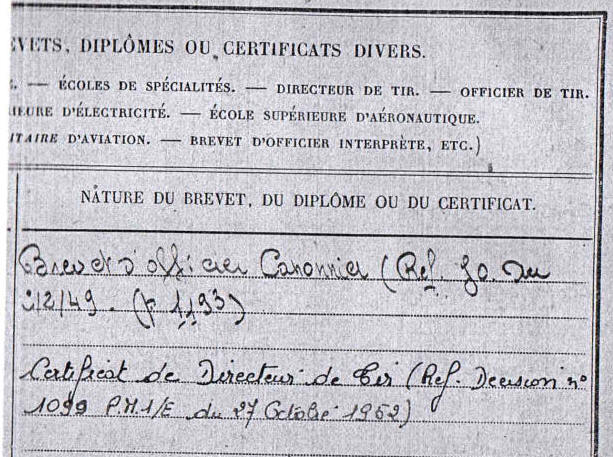 VETS, DIPLÔMES OU CERTIFICATS DIVERS.
— ÉCOLES DE SPÉCIALITÉS. — DIRECTEUR DE TIR. — OFFICIER DE TIR.
IEURE D'ÉLECTRICITÉ. — ÉCOLE SUPÉRIEURE D'AÉRONAUTIQUE.
ITAIRE D'AVIATION. — BREVET D'OFFICIER INTERPRÈTE, ETC.)
NATURE DU BREVET, DU DIPLÔME OU DU CERTIFICAT.
Brevet d'officier Canonnier (Ref. JO. du
2/2/49. (p 1193)
Certificat de Directeur de Tir (Ref. Decision n°
1099 P.M.1/E du 27 Octobre 1952)